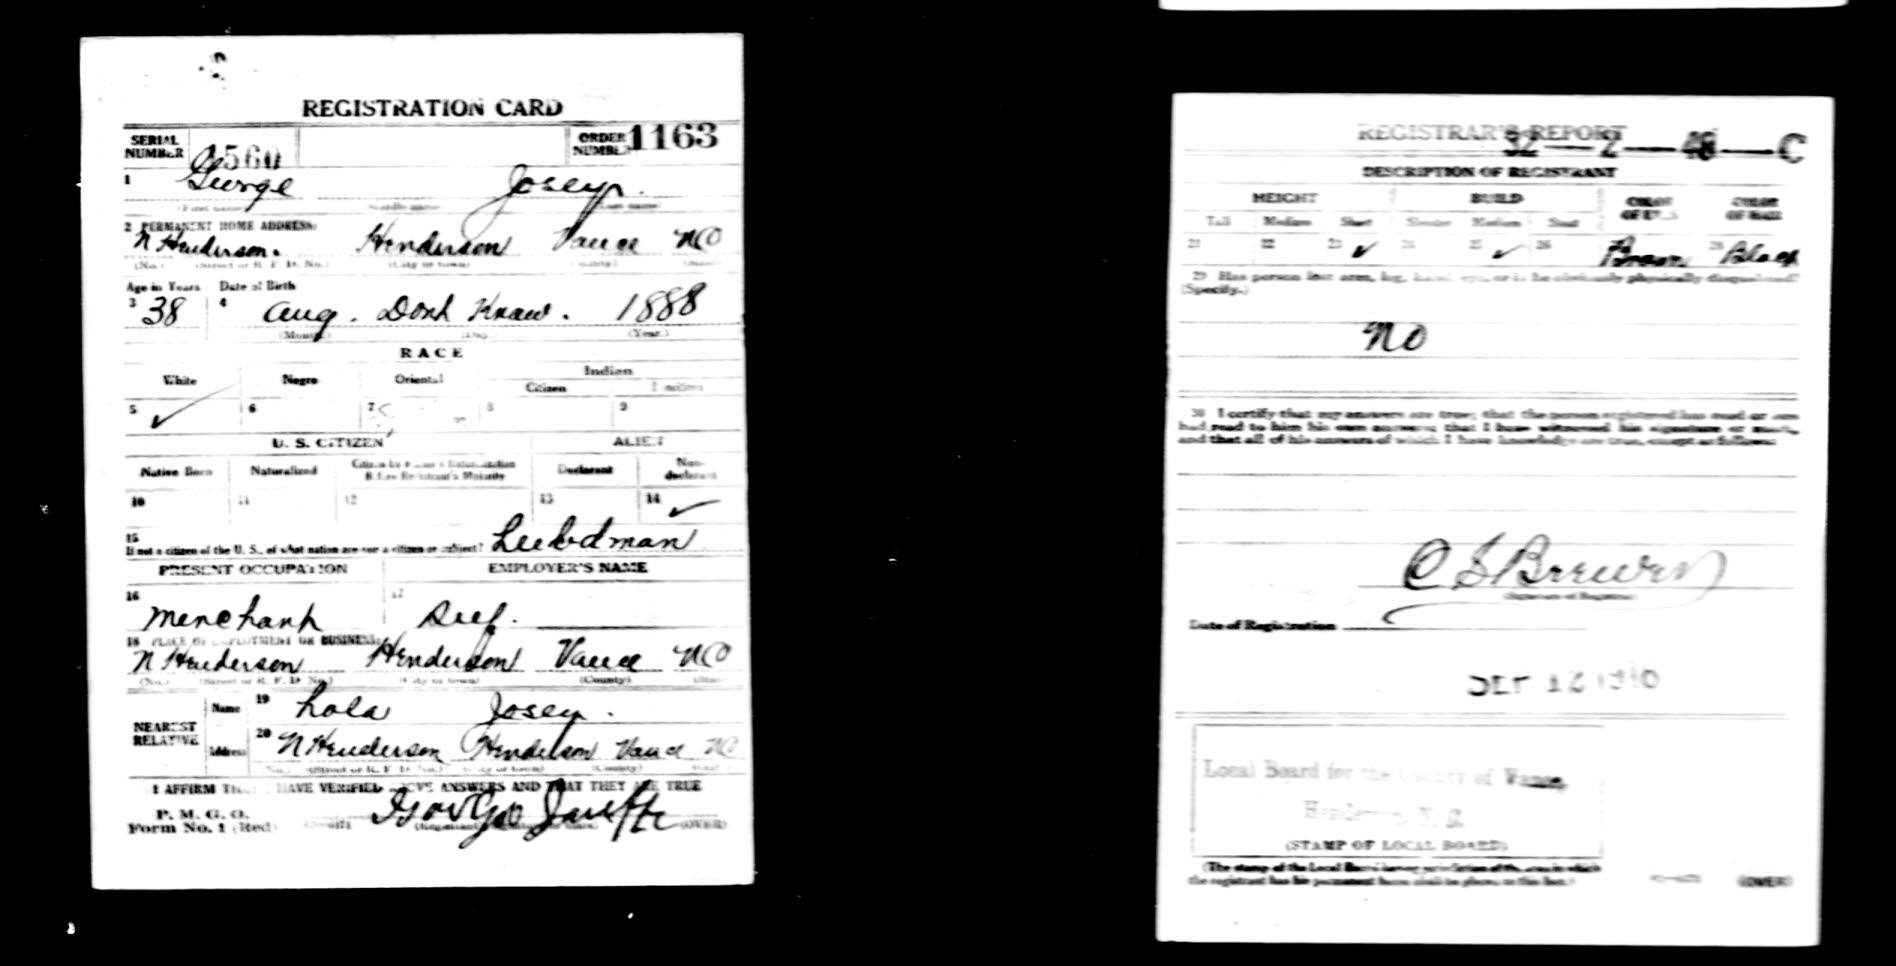 REGISTRATION CARD
SERIAL NUMBER 560 ORDER NUMBER 1163
1 George Josey.
(First name) (Middle name) (Last name)
2 PERMANENT HOME ADDRESS:
N Henderson. Henderson Vance NC
(No.) (Street or R. F. D. No.) (City or town) (County) (State)
Age in Years Date of Birth
3 38 4 Aug. Dont Know. 1888
(Month) (Day) (Year.)
RACE
White Negro Oriental Indian
Citizen
5 ✓ 6 7 8 9
U. S. CITIZEN ALIEN
Native Born Naturalized Citizen by Declarant Non-declarant
10 11 12 13 14 ✓
15
If not a citizen of the U. S., of what nation are you a citizen or subject?
PRESENT OCCUPATION EMPLOYER'S NAME
16 Merchant 17 Self.
18 PLACE OF EMPLOYMENT OR BUSINESS:
N Henderson Henderson Vance NC
(No.) (Street or R. F. D. No.) (City or town) (County) (State)
NEAREST RELATIVE
Name 19 Lola Josey.
Address 20 N Henderson Henderson Vance NC
(No.) (Street or R. F. D. No.) (City or town) (County) (State)
I AFFIRM THAT I HAVE VERIFIED ABOVE ANSWERS AND THAT THEY ARE TRUE
P. M. G. O.
Form No. 1 (Red) (OVER)
REGISTRAR'S REPORT
32—2—48—C
DESCRIPTION OF REGISTRANT
HEIGHT BUILD COLOR OF EYES COLOR OF HAIR
Tall Medium Short Slender Medium Stout
21 22 23 ✓ 24 25 ✓ 26 Brown 28 Black
29 Has person lost arm, leg, hand, eye, or is he obviously physically disqualified?
(Specify.)
No
30 I certify that my answers are true; that the person registered has read or has
had read to him his own answers; that I have witnessed his signature or mark,
and that all of his answers of which I have knowledge are true, except as follows:
C S Brewer
(Signature of Registrar)
Date of Registration
Local Board for the County of Vance,
Henderson, N. C.
(STAMP OF LOCAL BOARD)
(The stamp of the Local Board having jurisdiction of the area in which
the registrant has his permanent home shall be placed in this box.)
(OVER)